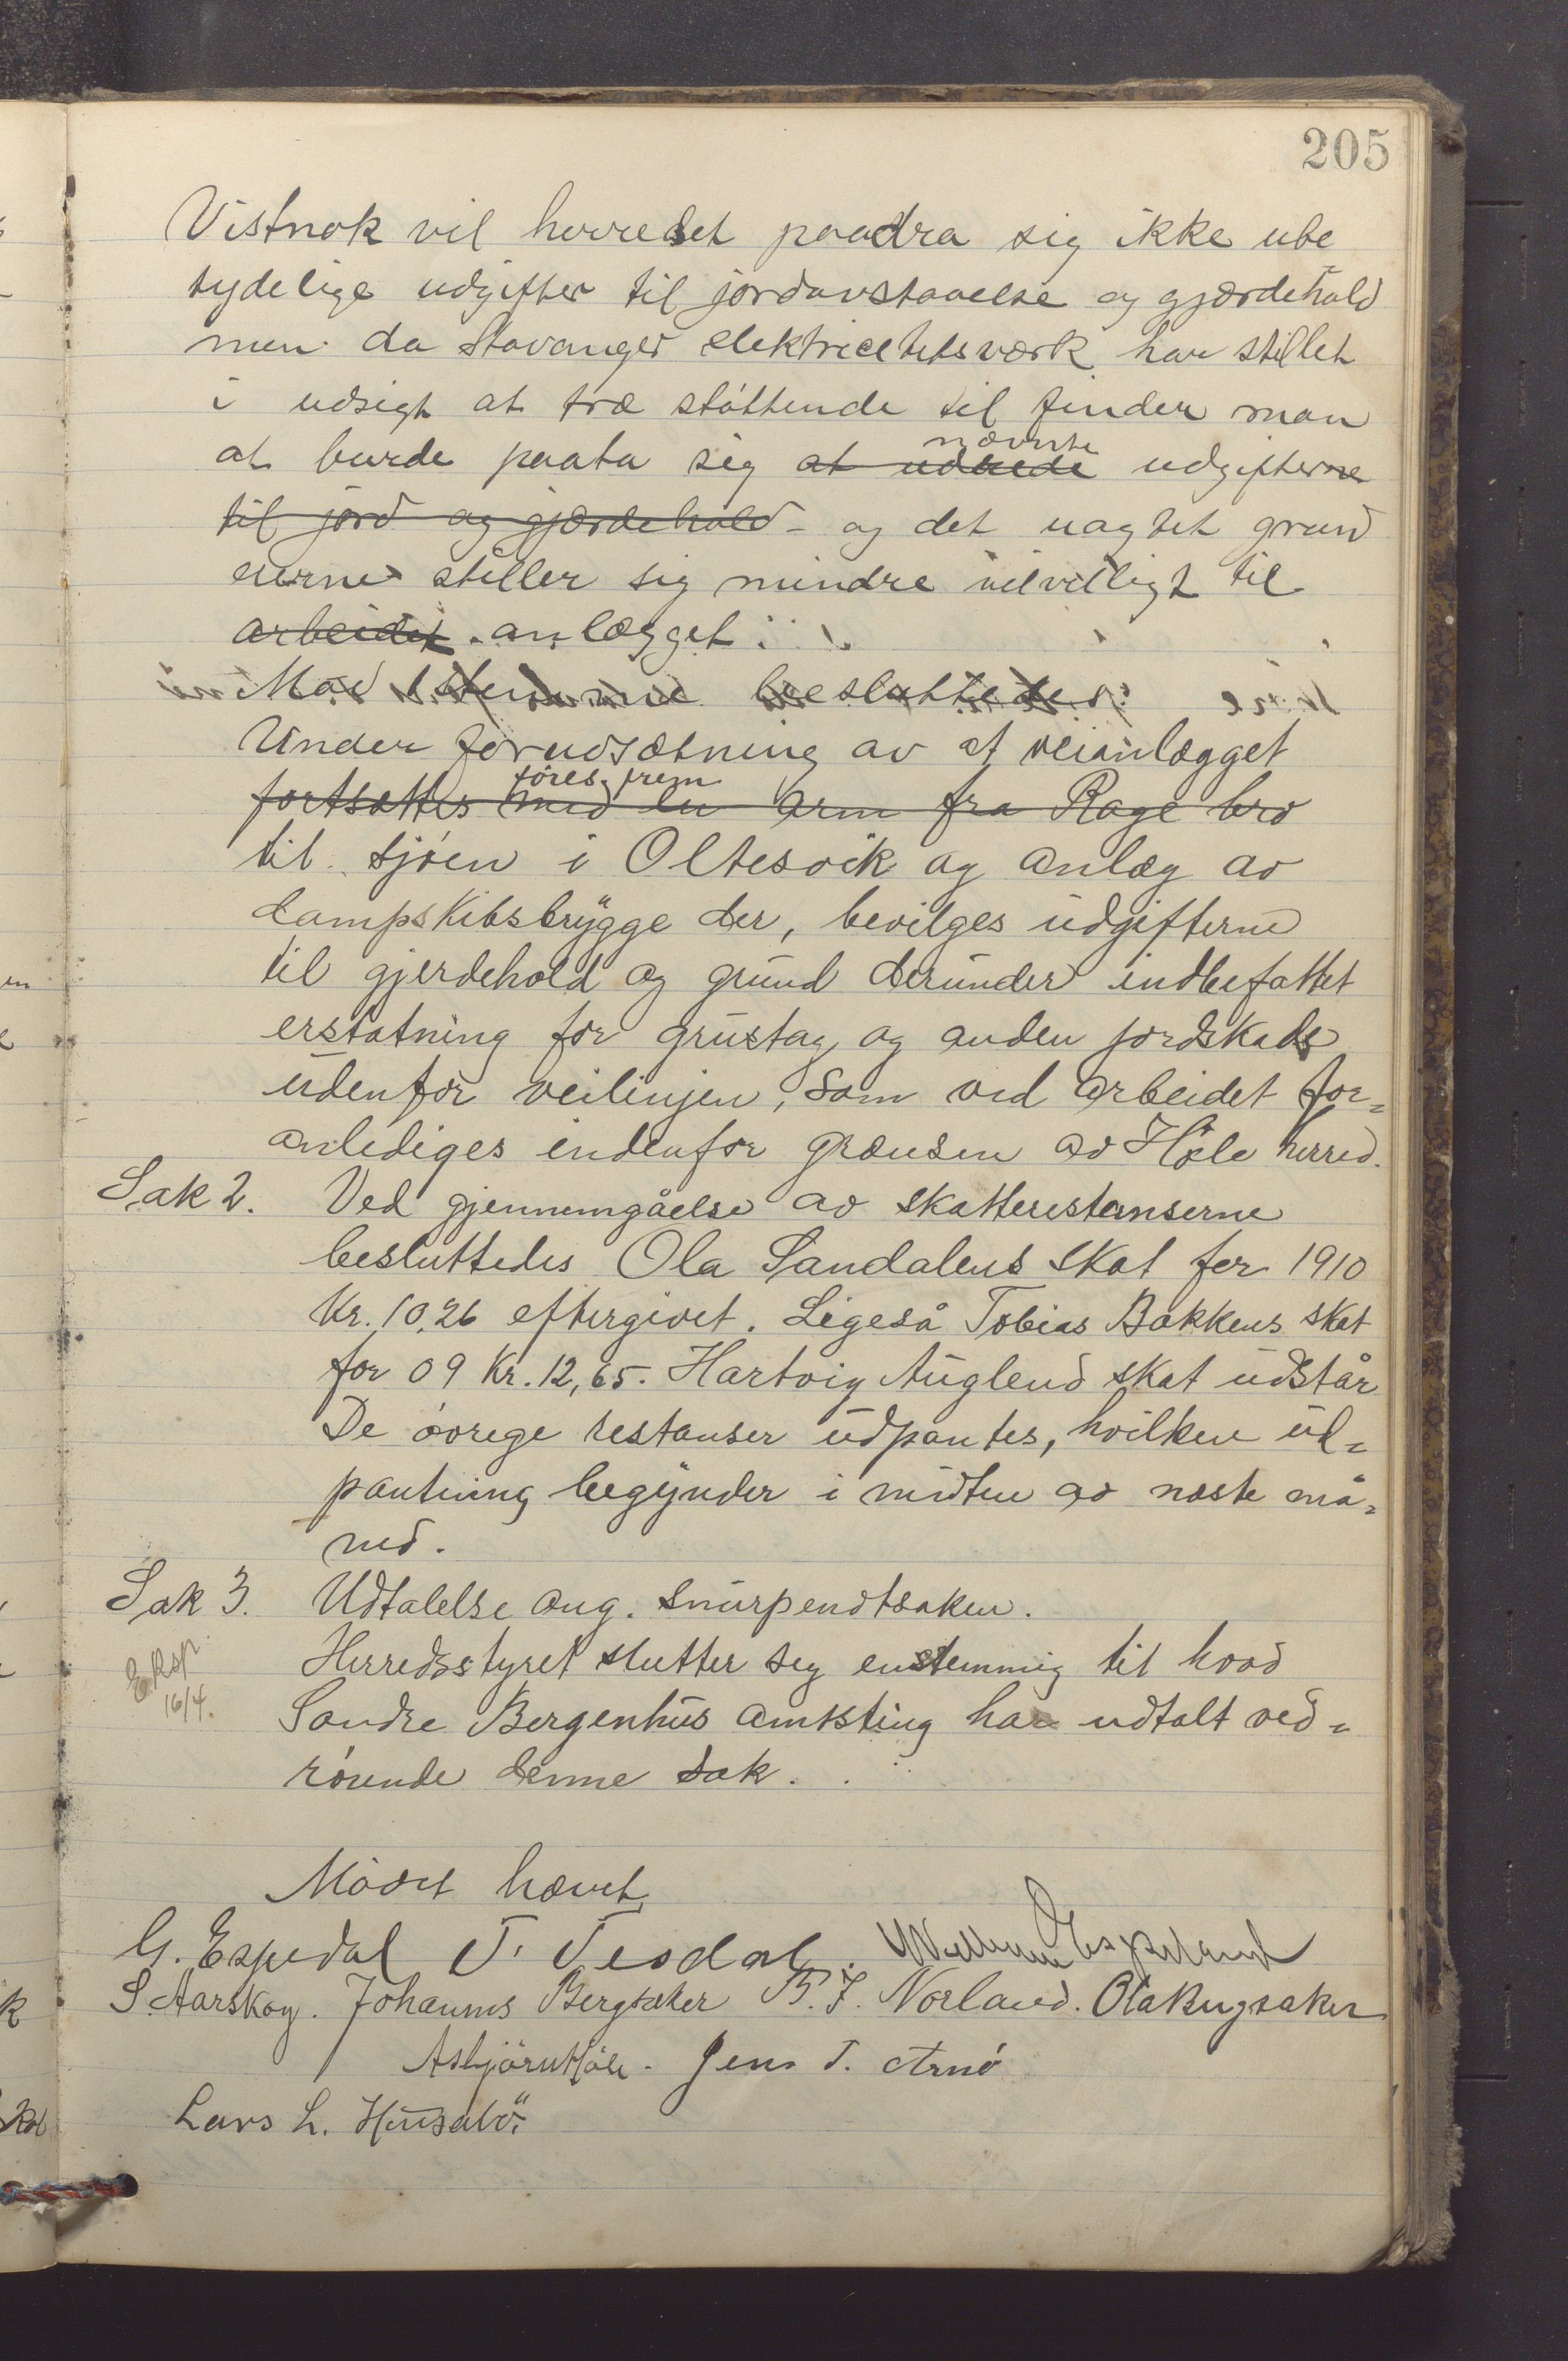 205
Vistnok vil herredet paadra sig ikke ube
tydelige udgifter til jordavstaaelse og gjærdehold
men da Stavanger elektricitetsværk har stillet
i udsigt at træ støttende til finder man
at burde paata sig at udrede nævnte udgifterne
til jord og gjærdehold - og det uagtet grund
eierne stiller sig mindre velvilligt til
arbeidet anlægget.
Mod 1 stemme besluttedes:
Under forudsætning av at veianlægget
fortsættes med en arm fra Rage bro føres frem
til sjøen i Oltesvik og anlæg av
dampskibsbrygge der, bevilges udgifterne
til gjerdehold og grund derunder indbefattet
erstatning for grustag og anden jordskade
udenfor veilinjen, som ved arbeidet for=
anlediges indenfor grænsen av Høle herred.
Sak 2. Ved gjennemgåelse av skatterestanserne
besluttedes Ola Sandalens skat for 1910
Kr. 10,26 eftergivet. Ligeså Tobias Bakkens skat
for 09 Kr. 12,65. Hartvig Auglend skat udstår
De øvrige restanser udpantes, hvilken ud=
pantning begynder i midten av næste må=
ned.
Sak 3. Udtalelse ang. snurpenotsaken.
Eksp. 16/4.
Herredsstyret slutter seg enstemmig til hvad
Søndre Bergenhus amtsting har udtalt ved=
rørende denne sak.
Mødet hævet
G. Espedal T. Tesdal. Willum Espeland
S. Aarskog. Johannes Bergsaker B. J. Norland. Ola Kugsaker
Asbjørn Høle. Jens T. Arnø
Lars L. Husabø.